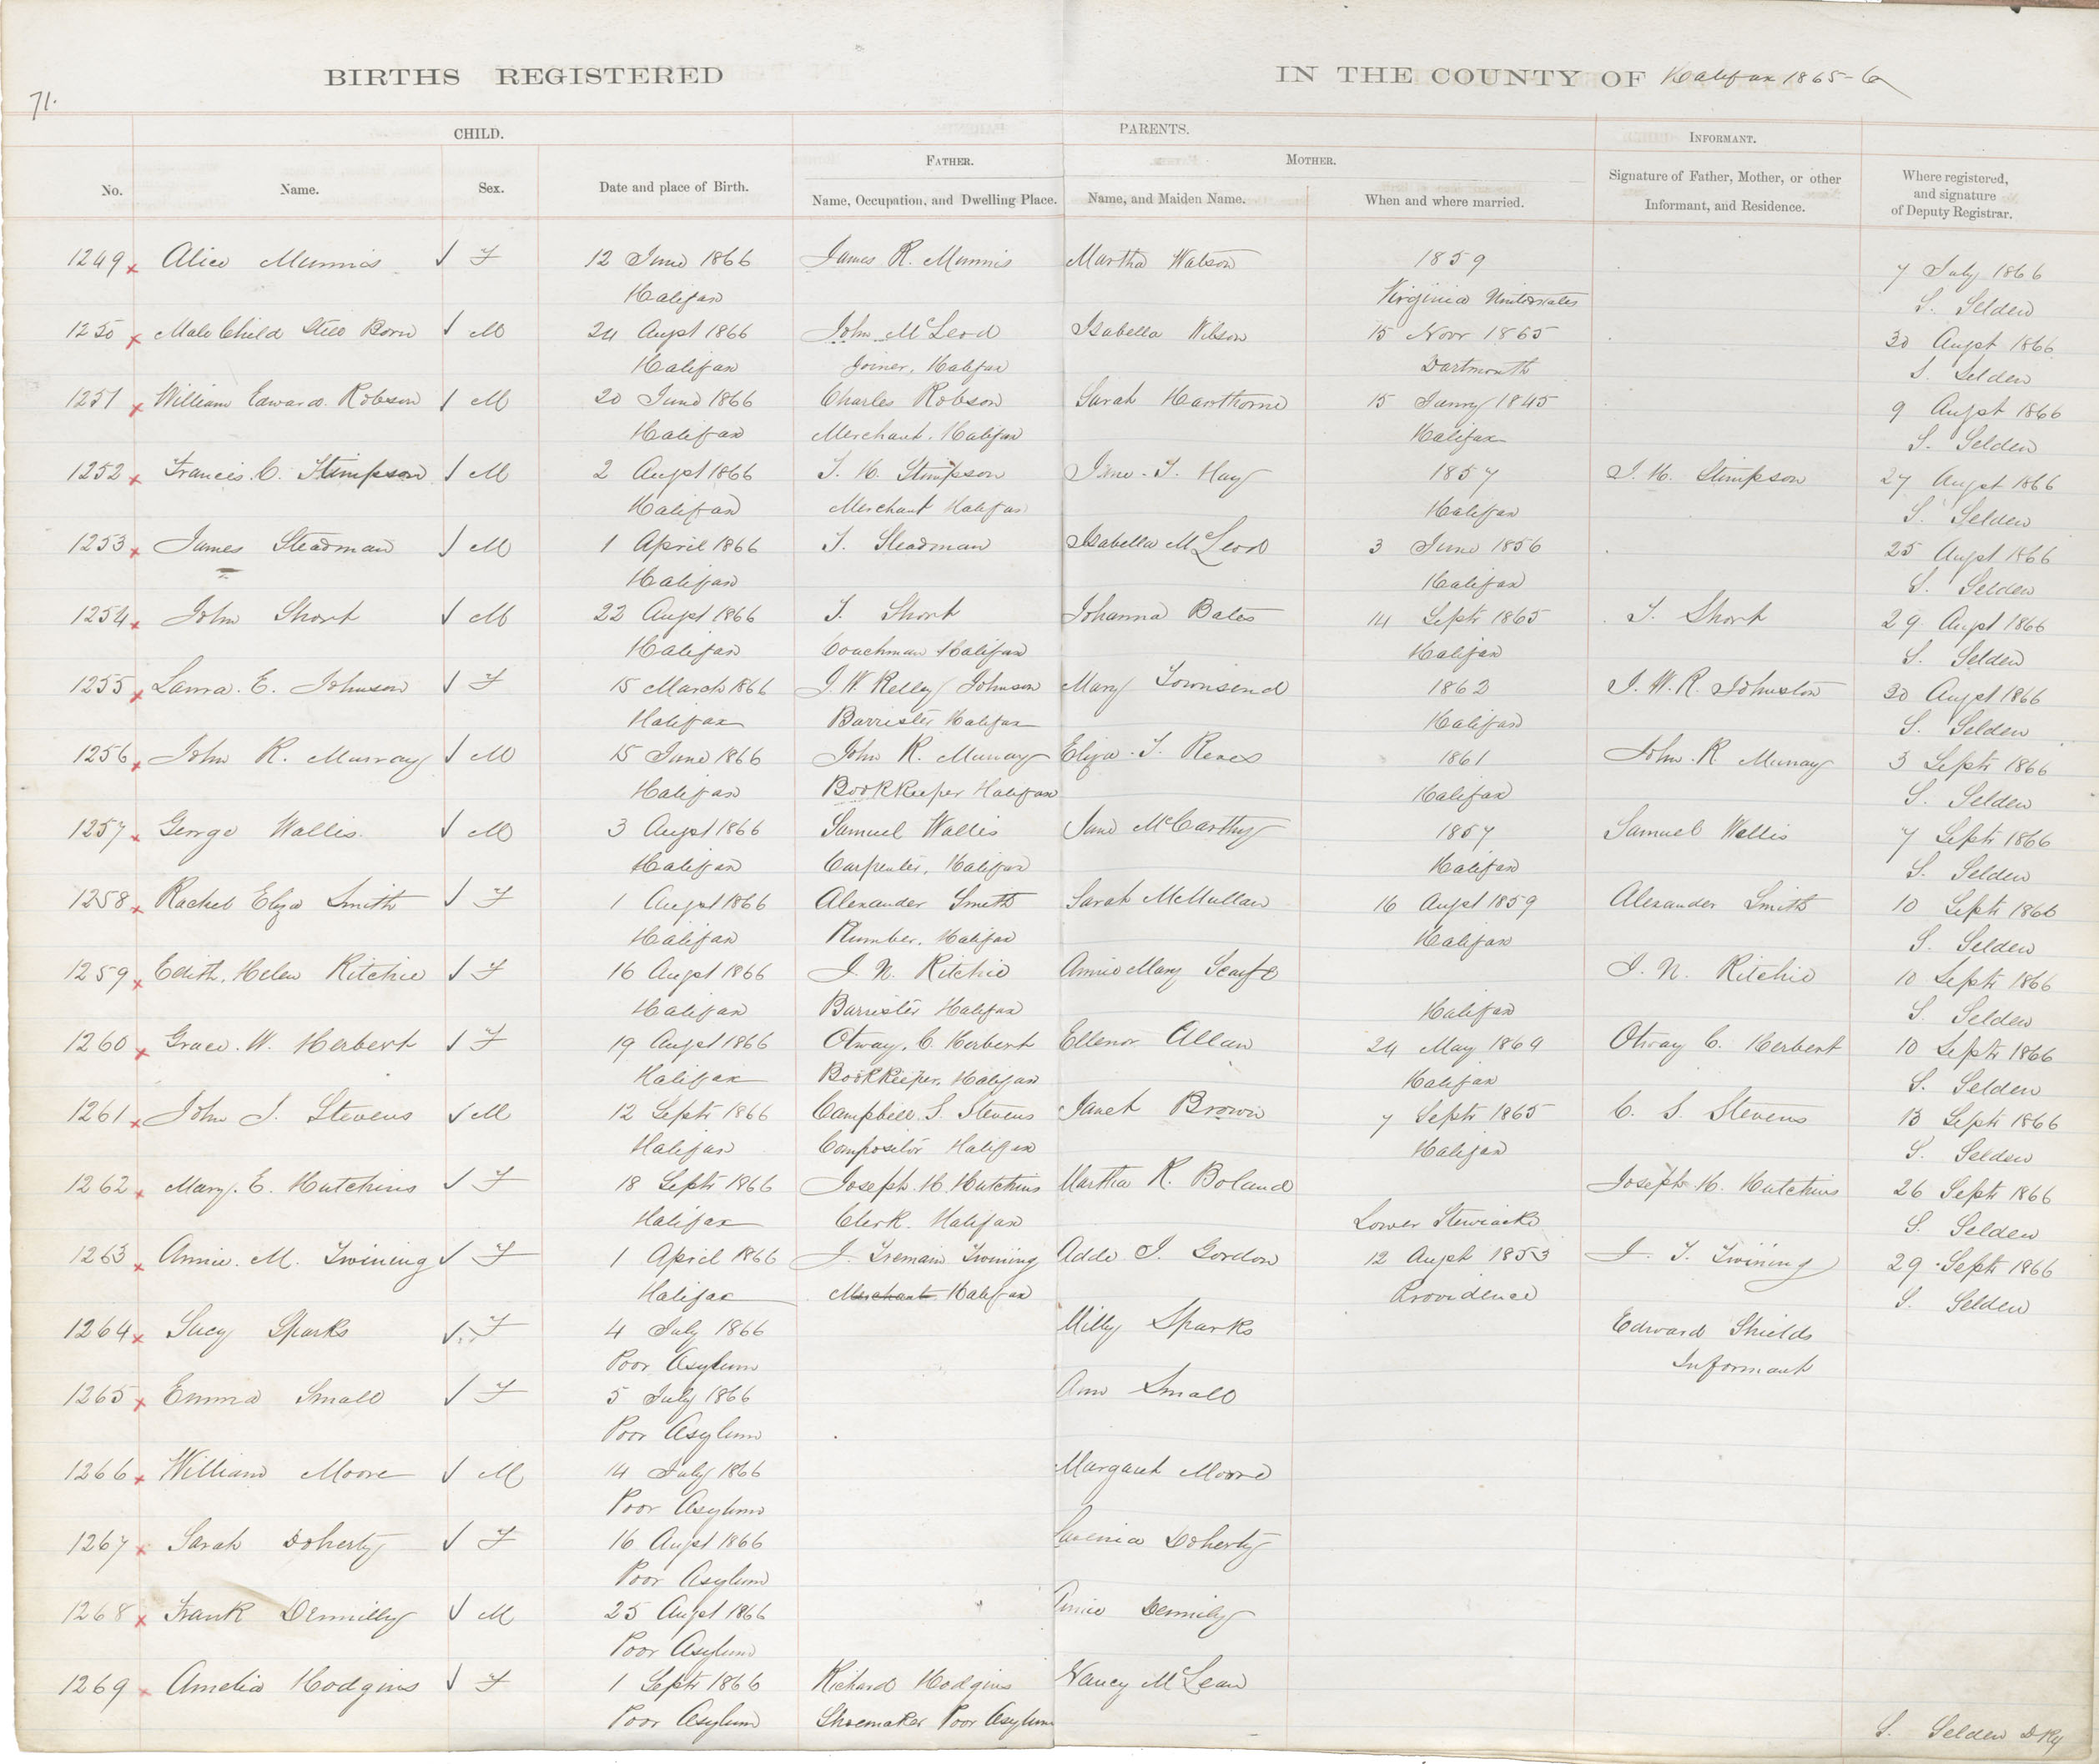 71.
BIRTHS REGISTERED IN THE COUNTY OF Halifax 1865-6
CHILD. PARENTS. INFORMANT.
FATHER. MOTHER.
No. Name. Sex. Date and place of Birth. Name, Occupation, and Dwelling Place. Name, and Maiden Name. When and where married. Signature of Father, Mother, or other Informant, and Residence. Where registered, and signature of Deputy Registrar.
1249 x Alice Munnis √ F 12 June 1866 James R. Munnis Martha Watson 1859 7 July 1866
Halifax Virginia S. Selden
1250 x Male Child Still Born √ M 24 Augst 1866 John McLeod Isabella Wilson 15 Novr 1865 30 Augst 1866
Halifax Joiner, Halifax Dartmouth S. Selden
1251 x William Edward Robson √ M 20 June 1866 Charles Robson Sarah Hawthorne 15 Janry 1845 9 Augst 1866
Halifax Merchant. Halifax Halifax S. Selden
1252 x Francis. C. Stimpson √ M 2 Augst 1866 J. H. Stimpson Hay 1857 J. H. Stimpson 27 Augst 1866
Halifax Merchant Halifax Halifax S. Selden
1253 x James Steadman √ M 1 April 1866 J. Steadman Isabella McLeod 3 June 1856 25 Augst 1866
Halifax Halifax S. Selden
1254 x John Short √ M 22 Augst 1866 J. Short Johanna Bates 14 Septr 1865 J. Short 29 Augst 1866
Halifax Coachman Halifax Halifax S. Selden
1255 x Laura. E. Johnson √ F 15 March 1866 J. W. Kelly Johnson Mary Townsend 1862 J. W. R. Johnston 30 Augst 1866
Halifax Barrister Halifax Halifax S. Selden
1256 x John R. Murray √ M 15 June 1866 John R. Murray Eliza. T. 1861 John. R Murray 3 Septr 1866
Halifax BookKeeper Halifax Halifax S. Selden
1257 x George Wallis √ M 3 Augst 1866 Samuel Wallis Jane McCarthy 1857 Samuel Wallis 7 Septr 1866
Halifax Carpenter. Halifax Halifax S. Selden
1258 x Rachel Eliza Smith √ F 1 Augst 1866 Alexander Smith Sarah McMullan 16 Augst 1859 Alexander Smith 10 Septr 1866
Halifax Plumber. Halifax Halifax S. Selden
1259 x Edith. Helen Ritchie √ F 16 Augst 1866 J. N. Ritchie Annie Mary Scarfe J. N. Ritchie 10 Septr 1866
Halifax Barrister Halifax Halifax S. Selden
1260 x Grace. W. Herbert √ F 19 Augst 1866 Otway. C. Herbert Ellenor Allan 24 May 1869 Otway C. Herbert 10 Septr 1866
Halifax BookKeeper. Halifax Halifax S. Selden
1261 x John J. Stevens √ M 12 Septr 1866 Campbell. S. Stevens Janet Brown 7 Septr 1865 C. S. Stevens 13 Septr 1866
Halifax Compositor Halifax Halifax S. Selden
1262 x Mary. E. Hutchins √ F 18 Septr 1866 Joseph. H. Hutchins Martha R. Boland Joseph. H. Hutchins 26 Septr 1866
Halifax Clerk. Halifax Lower Stewiacke S. Selden
1263 x Annie. M. Twining √ F 1 April 1866 J. Tremain Twining Adde J. Gordon 12 Augst 1853 J. T. Twining 29 Septr 1866
Halifax Merchant Halifax Providence S. Selden
1264 x Lucy Sparks √ F 4 July 1866 Milly Sparks Edward Shields
Poor Asylum Informant
1265 x Emma Small √ F 5 July 1866 Ann Small
Poor Asylum
1266 x William Moore √ M 14 July 1866 Margaret Moore
Poor Asylum
1267 x Sarah Doherty √ F 16 Augst 1866 Lavenia Doherty
Poor Asylum
1268 x Frank Dennilly √ M 25 Augst 1866 Annie Dennily
Poor Asylum
1269 x Amelia Hodgins √ F 1 Septr 1866 Richard Hodgins Nancy McLean
Poor Asylum Shoemaker Poor Asylum S. Selden D Rg